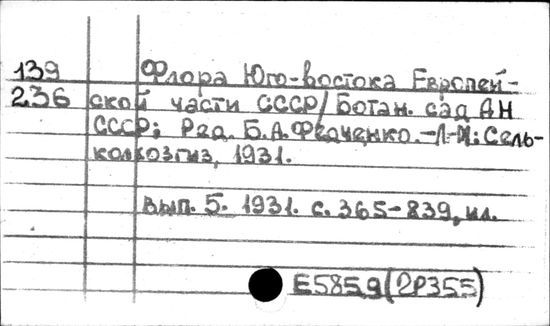 139 Флора Юго-востока Европей-
236 ской части СССР/Ботан. сад АН
СССР; Ред. Б.А.Федченко.-Л-М: Сель-
колхозгиз, 1931.
Вып. 5. 1931. с. 365-839, ил.
Е5859(2Р355)